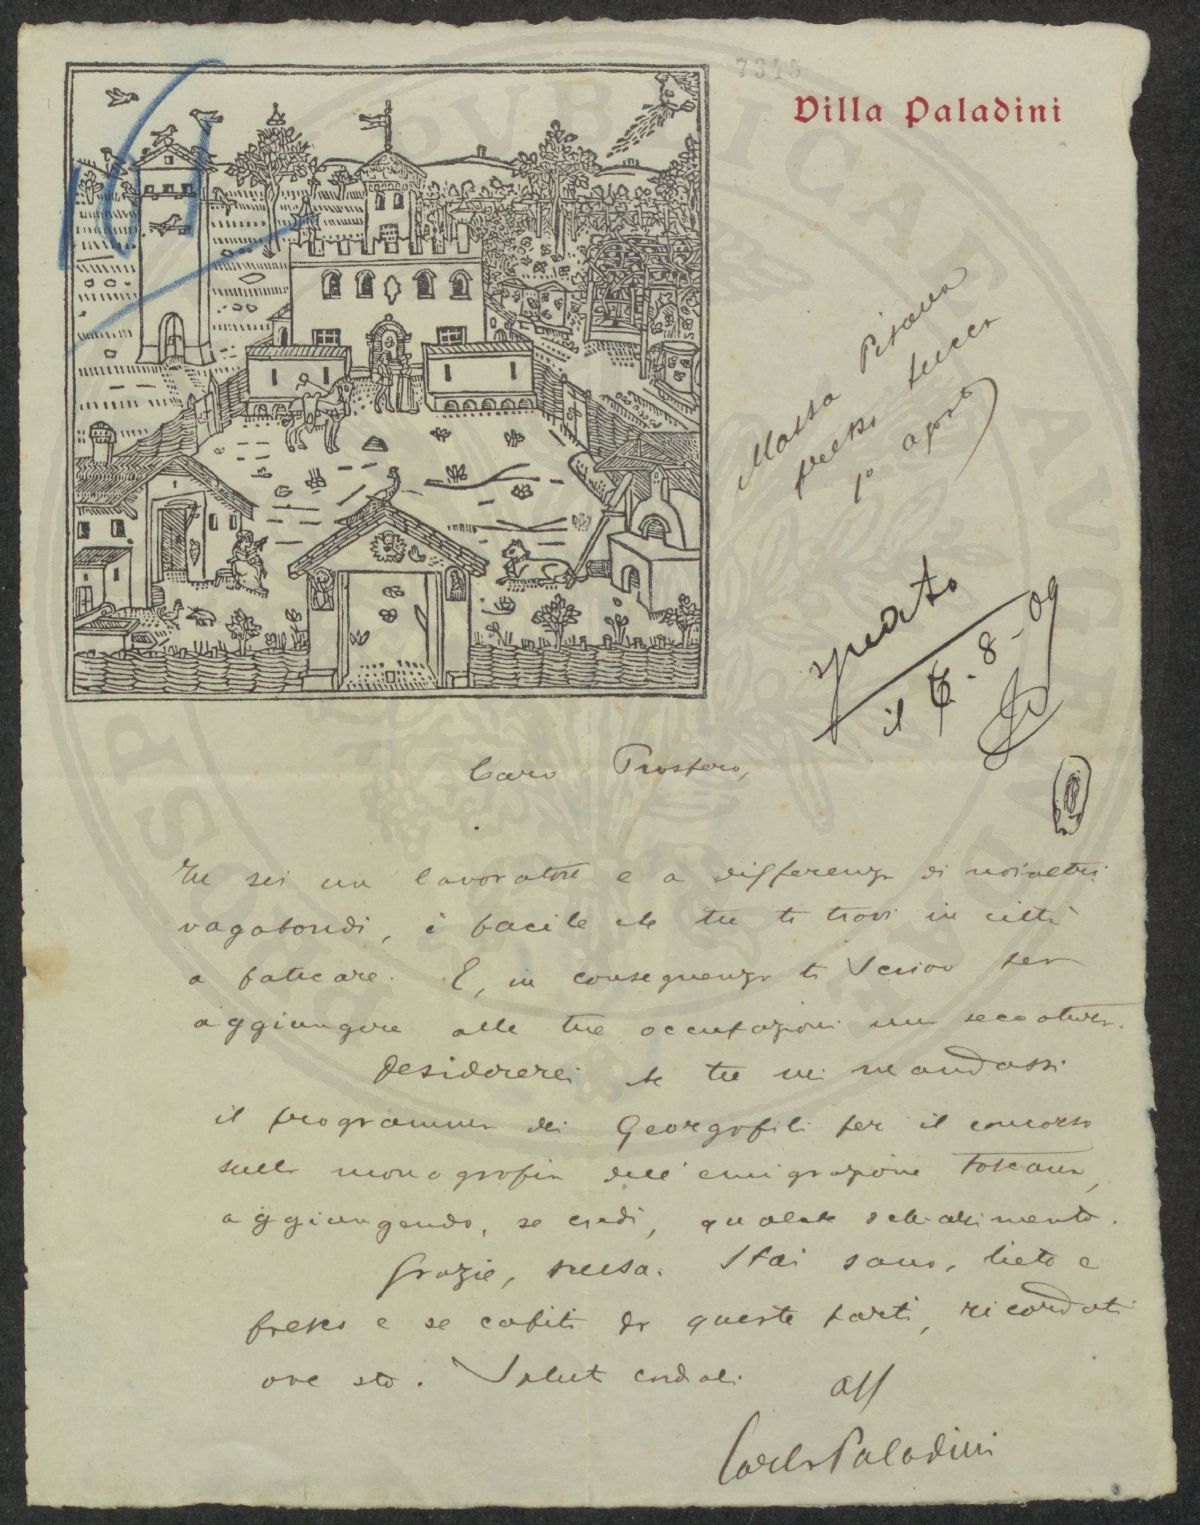 7315
101
Villa Paladini
Massa Pisana
presso Lucca
1° agosto
il 6-8-09
Caro Prospero,
Tu sei un lavoratore e a differenza di noialtri
vagabondi, è facile che tu ti trovi in città
a faticare. E, in conseguenza ti scrivo per
aggiungere alle tue occupazioni una seccatura.
Desidererei che tu mi mandassi
il programma dei Georgofili per il concorso
sulla monografia dell'emigrazione toscana,
aggiungendo, se credi, qualche schiarimento.
Grazie, scusa. Stai sano, lieto e
fresco e se capiti da queste parti, ricordati
ove sto. Saluti cordiali
aff
Carlo Paladini